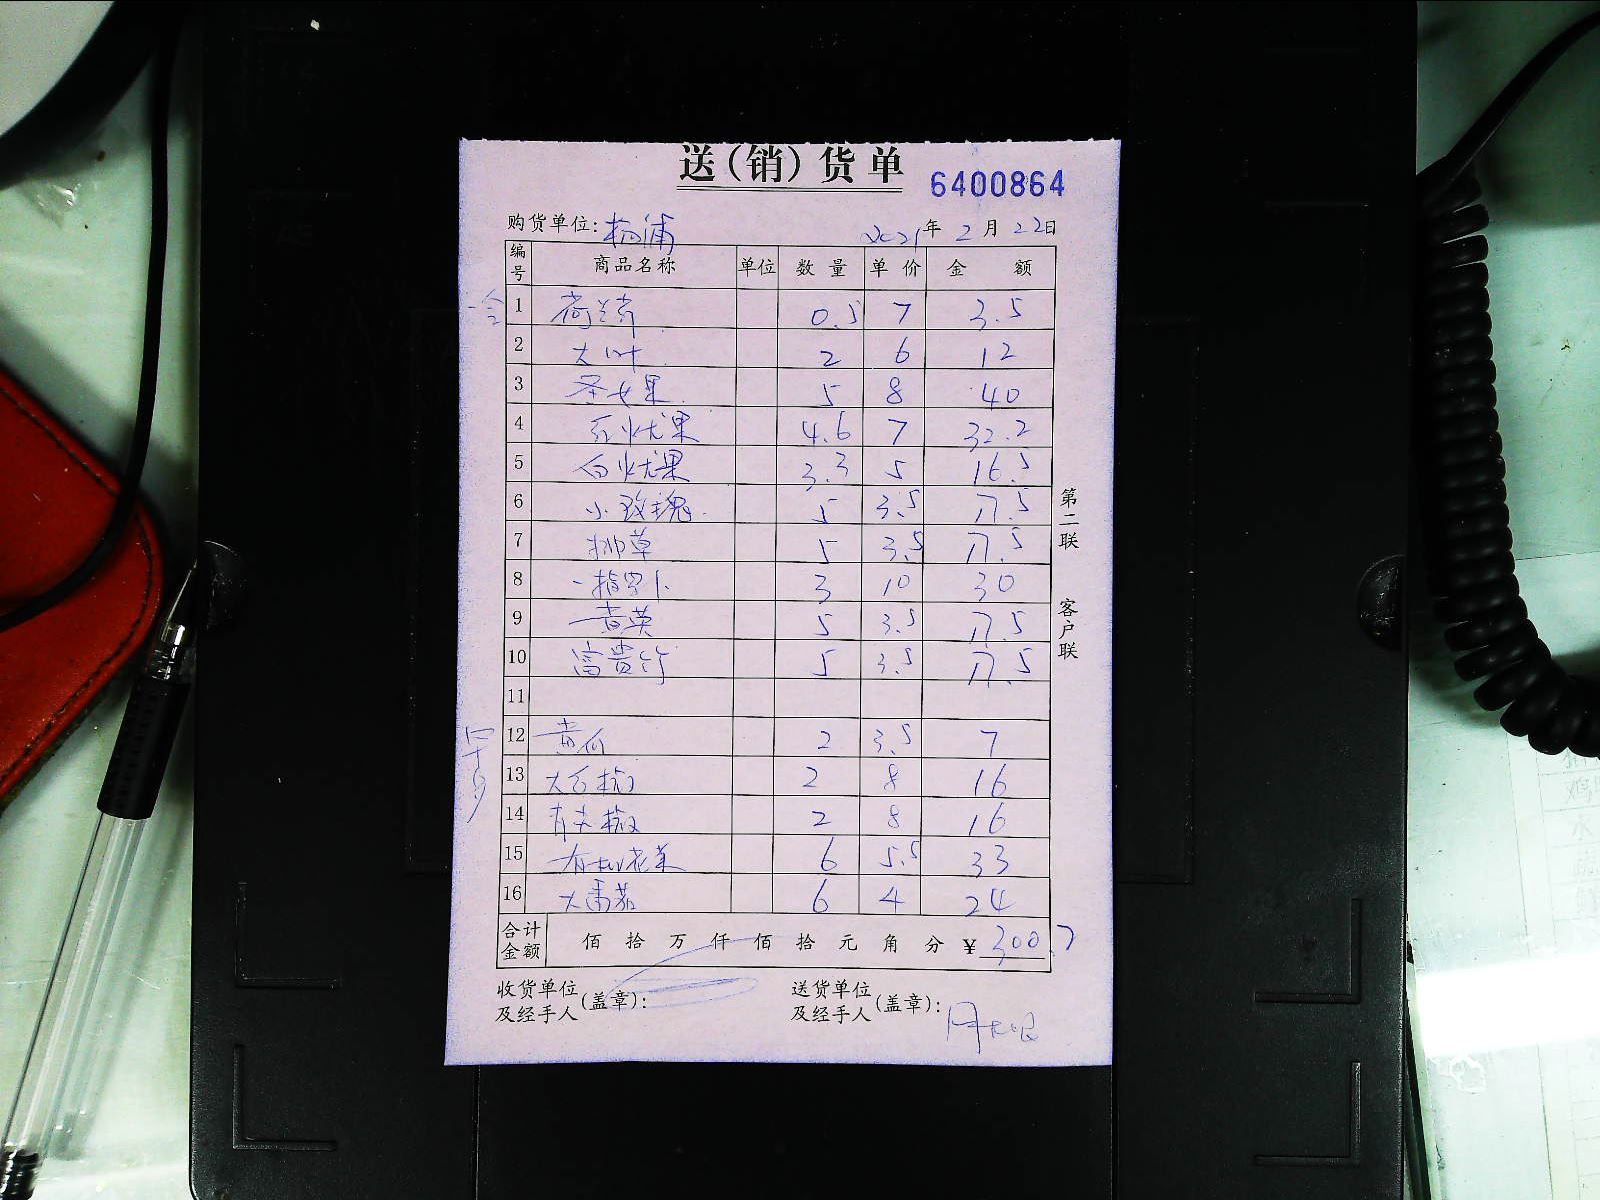 送(销)货单
6400864
购货单位: 杨浦 2021年 2月 22日
编号 商品名称 单位 数量 单价 金额
1 荷兰芹 0.5 7 3.5
2 大叶 2 6 12
3 圣女果 5 8 40
4 红火龙果 4.6 7 32.2
5 白火龙果 3.3 5 16.5
6 小玫瑰 5 3.5 17.5
7 排草 5 3.5 17.5
8 一指罗卜 3 10 30
9 黄英 5 3.5 17.5
10 富贵竹 5 3.5 17.5
11
12 黄瓜 2 3.5 7
13 大红椒 2 8 16
14 青大椒 2 8 16
15 有机花菜 6 5.5 33
16 大番茄 6 4 24
合计金额 佰 拾 万 仟 佰 拾 元 角 分 ¥ 300.7
收货单位及经手人(盖章): 送货单位及经手人(盖章):
第二联 客户联